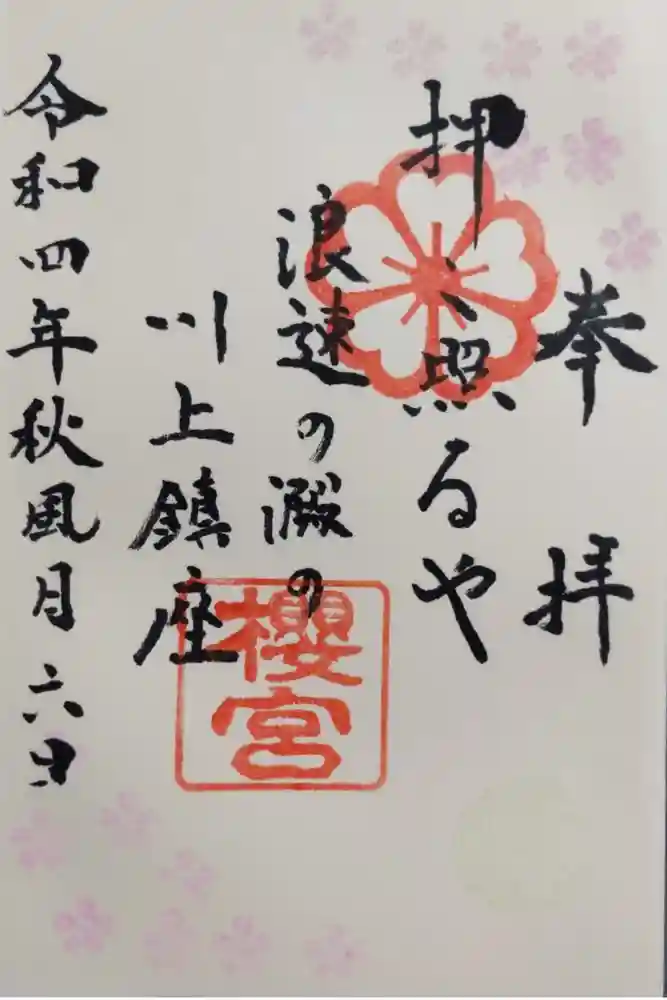 奉拝
押ゝ照るや
浪速の澱の
川上鎮座
令和四年秋風月六日
櫻宮